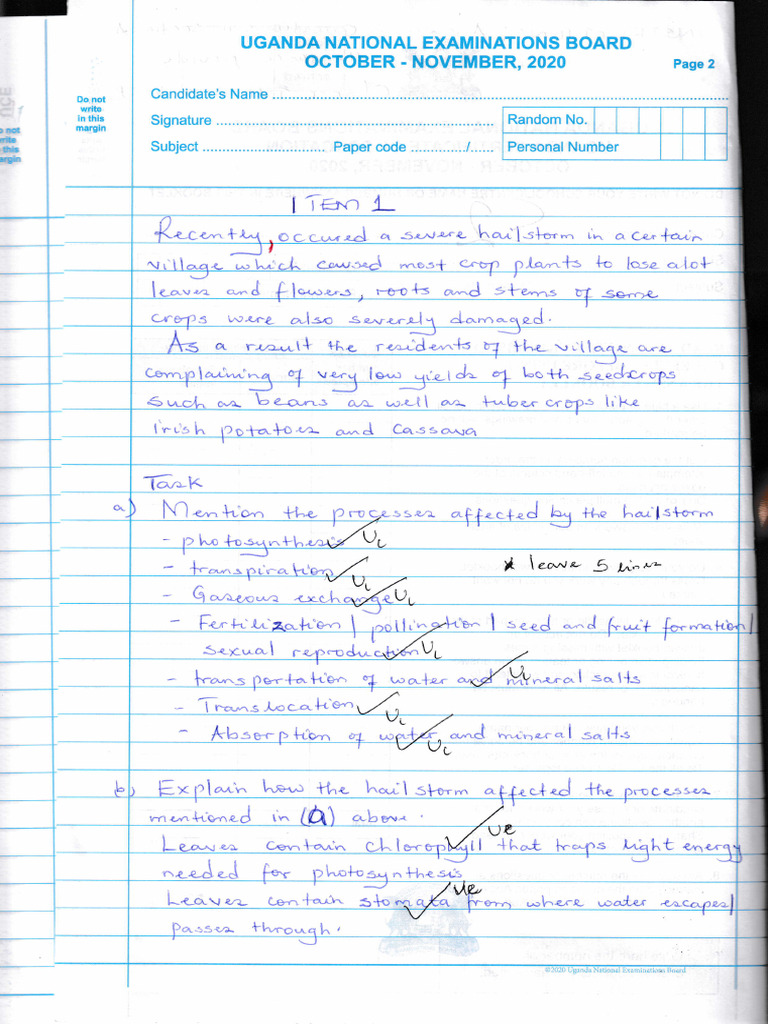 UGANDA NATIONAL EXAMINATIONS BOARD
OCTOBER - NOVEMBER, 2020
Page 2
Do not
write
in this
margin
Candidate's Name
Signature
Random No.
Subject
Paper code / 
Personal Number
ITEM 1
Recently, occured a severe hailstorm in a certain
village which caused most crop plants to lose alot
leaves and flowers, roots and stems of some
crops were also severely damaged.
As a result the residents of the village are
complaining of very low yields of both seedcrops
such as beans as well as tuber crops like
Irish potatoes and Cassava
Task
a) Mention the processes affected by the hailstorm
- photosynthesis
- transpiration
* leave 5 lines
- Gaseous exchange
- Fertilization / pollination / seed and fruit formation /
sexual reproduction
- transportation of water and mineral salts
- Translocation
- Absorption of water and mineral salts
b) Explain how the hailstorm affected the processes
mentioned in (a) above.
Leaves contain chlorophyll that traps light energy
needed for photosynthesis
Leaves contain stomata from where water escapes/
passes through.
©2020 Uganda National Examinations Board